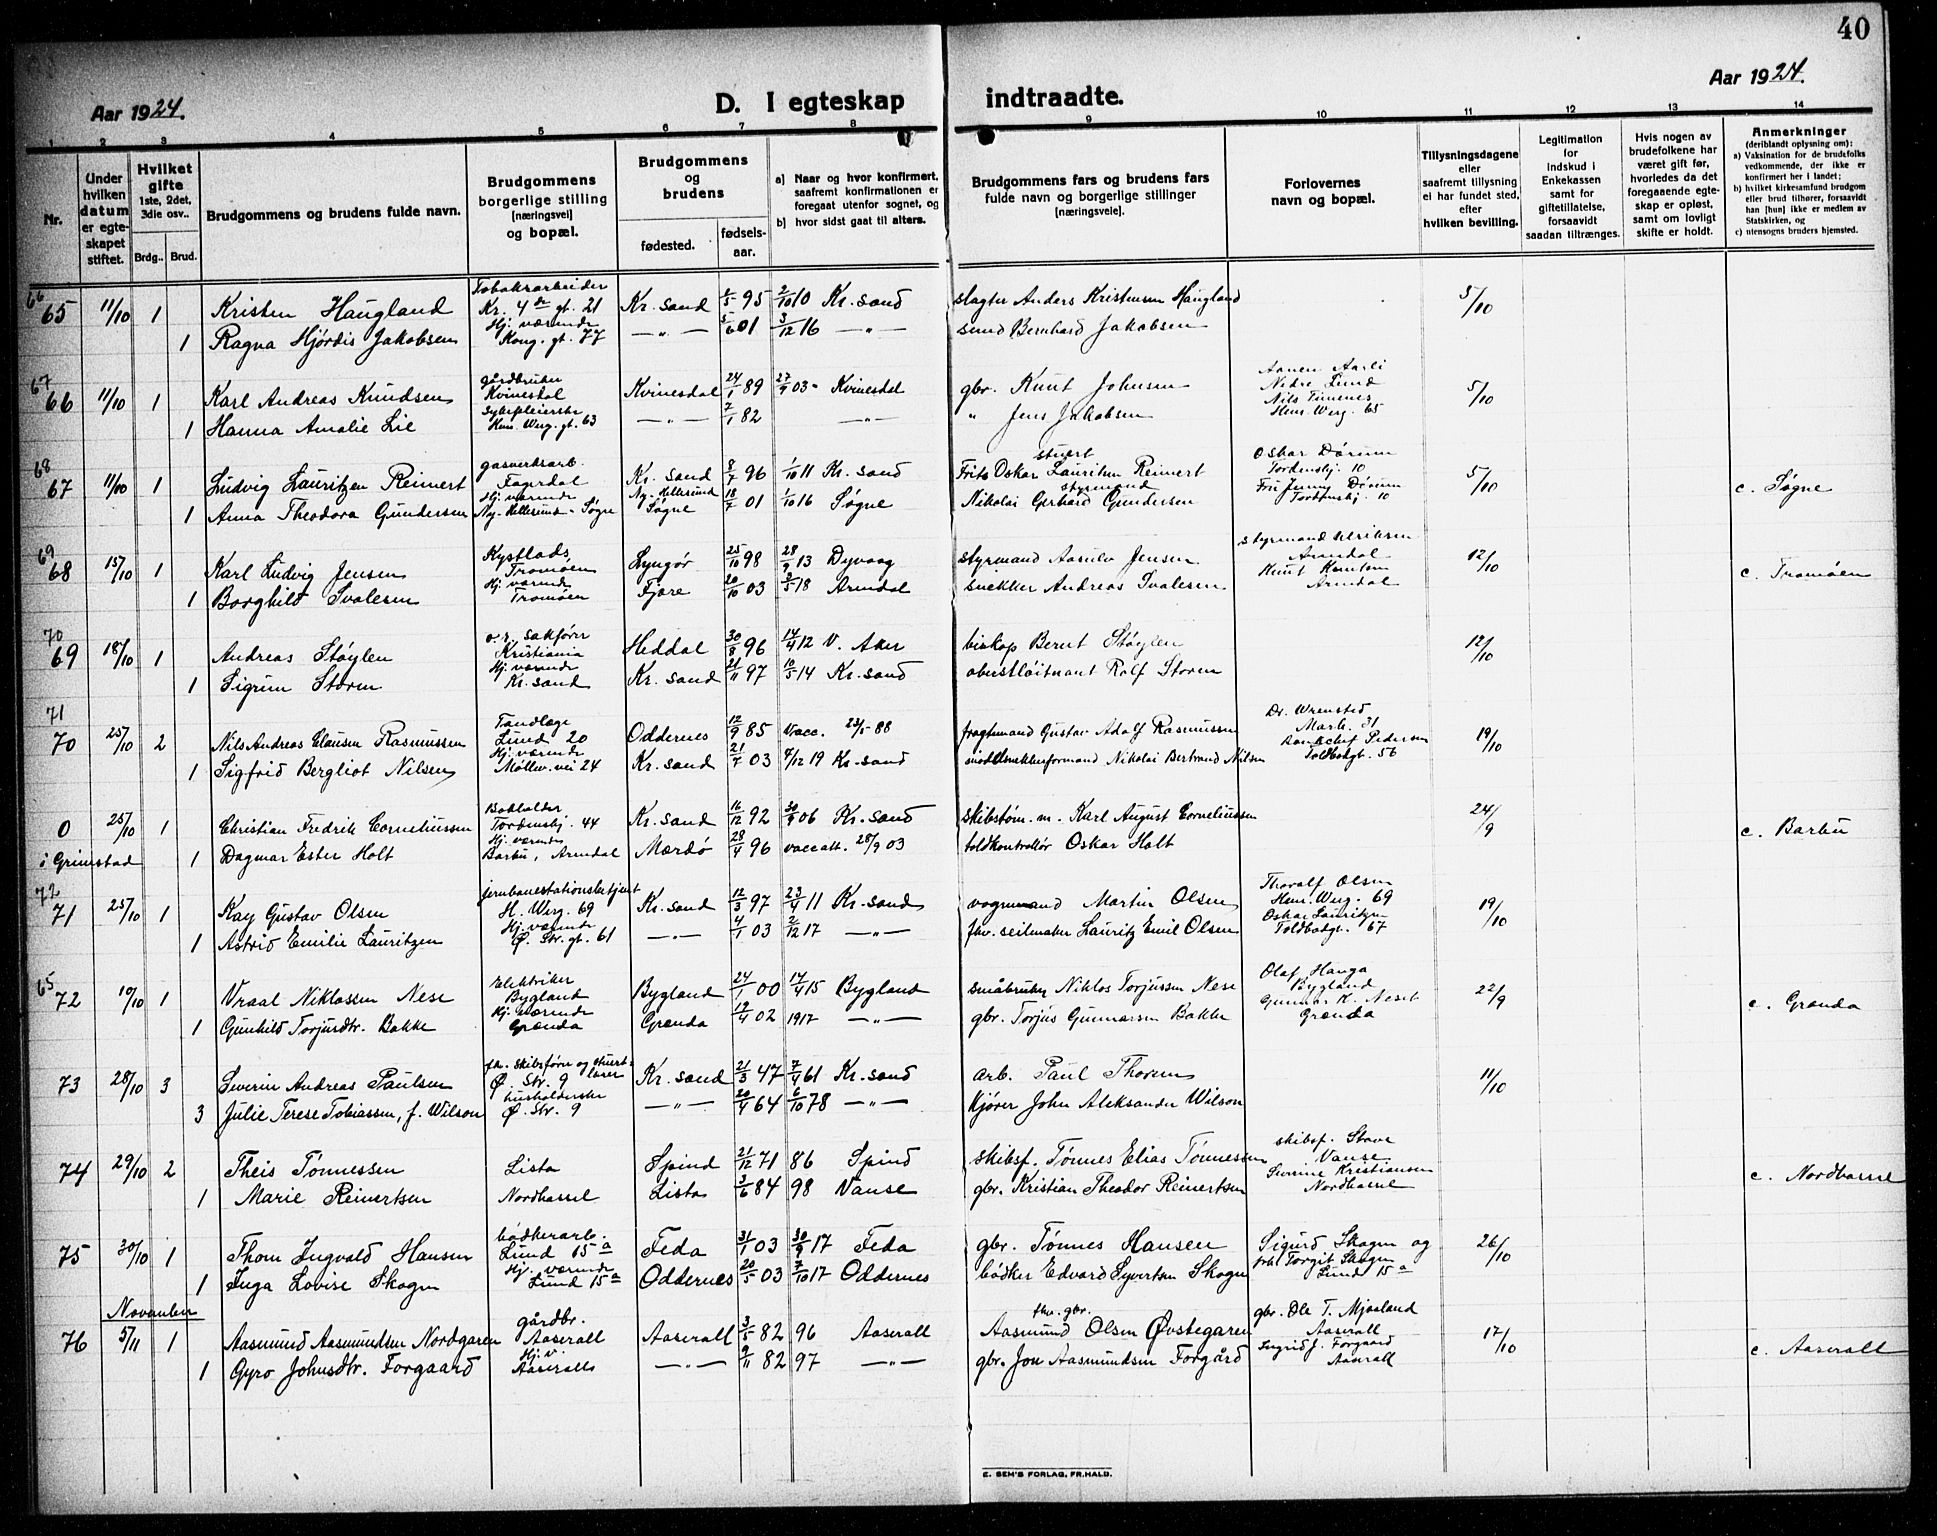 40
Aar 1924.
D. I egteskap
indtraadte.
Aar 1924.
1 2 3 4 5 6 7 8 9 10 11 12 13 14
Nr.
Under hvilken datum er egte-skapet stiftet.
Hvilket gifte 1ste, 2det, 3die osv..
Brdg.. Brud.
Brudgommens og brudens fulde navn.
Brudgommens borgerlige stilling [næringsvei] og bopæl.
Brudgommens og brudens
fødested. fødsels-aar.
a) Naar og hvor konfirmert, saafremt konfirmationen er foregaat utenfor sognet, og
b) hvor sidst gaat til alters.
Brudgommens fars og brudens fars fulde navn og borgerlige stillinger [næringsveie].
Forlovernes navn og bopæl.
Tillysningsdagene eller saafremt tillysning ei har fundet sted, efter hvilken bevilling.
Legitimation for indskud i Enkekassen samt for giftetillatelse, forsaavidt saadan tiltrænges.
Hvis nogen av brudefolkene har været gift før, hvorledes da det foregaaende egte-skap er opløst, samt om lovligt skifte er holdt.
Anmerkninger (deriblandt oplysning om):
a) Vaksination for de brudefolks vedkommende, der ikke er konfirmert her i landet;
b) hvilket kirkesamfund brudgom eller brud tilhører, forsaavidt han [hun] ikke er medlem av Statskirken, og
c) utensogns bruders hjemsted.
66
65 11/10 1 Kristen Haugland Tobaksarbeider Kr. 4de gt. 21 Kr. sand 1/5 95 2/10 10 Kr. sand slagter Anders Kristensen Haugland 5/10
1 Ragna Hjørdis Jakobsen Hj. værende Kong. gt. 77 —"— 5/6 01 3/12 16 —"— smed Bernhard Jakobsen
67
66 11/10 1 Karl Andreas Knudsen gårdbruker Kvinesdal Kvinesdal 24/1 89 27/9 03 - Kvinesdal gbr. Knut Johnsen Aanen Aarli Nedre Lund 5/10
1 Hanna Amalie Lie Sykepleierske Hen. Werg. gt. 63 —"— 7/1 82 —"— " Jens Jakobsen Nils Hen. Werg. 65
68
67 11/10 1 Ludvig Lauritzen Reinert gasverksarb. Fagerdal Kr. sand 8/7 96 1/10 11 Kr. sand stuert Frits Oskar Lauritzen Reinert Oskar Dørum Tordenskj. 10 5/10
1 Anna Theodora Gundersen Hj. værende Ny-Hellesund - Søgne Ny-Hellesund Søgne 18/7 01 1/10 16 Søgne styrmand Nikolai Gerhard Gundersen Fru Jenny Dørum Tordenskj. 10 c. Søgne
69
68 15/10 1 Karl Ludvig Jensen Kystlods Tromøen Lyngør 25/10 98 28/9 13 Dyvaag styrmand Aanulv Jensen styrmand Arendal 12/10
1 Borghild Svalesen Hj. værende Tromøen Fjære 20/10 03 3/5 18 Arendal snekker Andreas Svalesen Knut Knutsen Arendal c. Tromøen
70
69 18/10 1 Andreas Støylen o.r. sakfører Kristiania Heddal 30/8 96 14/4 12 V. Aker biskop Bernt Støylen 12/10
1 Sigrun Storm Hj. værende Kr. sand Kr. sand 21/11 97 10/5 14 Kr. sand oberstløitnant Rolf Storm
71
70 25/10 2 Nils Andreas Clausen Rasmussen Tandlæge Lund 20 Oddernes 12/9 85 Vacc. 23/5 88 fragtemand Gustav Adolf Rasmussen Dr. Wrensted Mark. 31 19/10
1 Sigfrid Bergliot Nilsen Hj. værende Møllev. vei 24 Kr. sand 21/7 03 7/12 19 Kr. sand modelsnekkerformand Nikolai Bertrand Nilsen Pedersen Toldbodgt. 56
0 25/10 1 Christian Fredrik Corneliussen Bokholder Tordenskj. 44 Kr. sand 16/12 92 30/9 06 Kr. sand skibstøm. m. Karl August Corneliussen 24/9
i Grimstad 1 Dagmar Ester Holt Hj. værende Barbu, Arendal Mærdø 28/4 96 vaccatt. 28/9 03 toldkontrollør Oskar Holt c. Barbu
72
71 25/10 1 Kay Gustav Olsen jernbanestationsbetjent H. Werg. 69 Kr. sand 12/3 97 23/4 11 Kr. sand vognmand Martin Olsen Thoralf Olsen Hen. Werg. 69 19/10
1 Astrid Emilie Lauritzen Hj. værende Ø. Str. gt. 61 —"— 4/1 03 2/12 17 —"— fhv. seilmaker Lauritz Emil Olsen Oskar Lauritzen Toldbodgt. 67
65
72 10/10 1 Vraal Niklassen Nese Elektriker Bygland Bygland 24/1 00 14/4 15 Bygland småbruker Niklos Torjussen Nese Olaf Hanga Bygland 22/9
1 Gunhild Torjusdtr. Bakke Hj. værende Grænda Grenda 12/4 02 1917 —"— gbr. Torjus Gunnarsen Bakke Gunnar K. Neset Grenda c. Grenda
73 28/10 3 Severin Andreas Paulsen fh. skibsfører og stuert: lærer Ø. Str. 9 Kr. sand 21/3 47 7/4 61 Kr. sand arb. Paul Thorsen 11/10
3 Julie Terese Tobiassen, f. Wilson husholderske Ø. Str. 9 —"— 20/4 64 6/10 78 —"— kjører John Aleksander Wilson
74 29/10 2 Theis Tønnessen Lista Spind 21/12 71 86 Spind skibsf. Tønnes Elias Tønnessen skibsf. Stave Vanse
1 Marie Reinertsen Nordhassel Lista 3/6 84 98 Vanse gbr. Kristian Theodor Reinertsen Severine Kristiansen Nordhassel c. Nordhassel
75 30/10 1 Thom Ingvald Hansen bødkerarb. Lund 15a Feda 31/1 03 30/9 17 Feda gbr. Tønnes Hansen Sigurd Skogen og 26/10
1 Inga Lovise Skogen Hj. værende Lund 15a Oddernes 20/5 03 7/10 17 Oddernes bødker Edvard Syvertsen Skogen frk. Torgit Skogen Lund 15a
November
76 5/11 1 Aasmund Aasmundsen Nordgaren gårdbr. Aaserall Aaserall 3/5 82 96 Aaserall fhv. gbr. Aasmund Olsen Øvstegaren gbr. Ole T. Mjaaland Aaserall 17/10
1 Gyro Johnsdtr. Forgaard Hj. v. Aaseralls —"— 9/11 82 97 —"— gbr. Jon Aasmundsen Forgård Ingrid J. Forgaard Aaserall c. Aaserall
E. SEM'S FORLAG, FR.HALD.